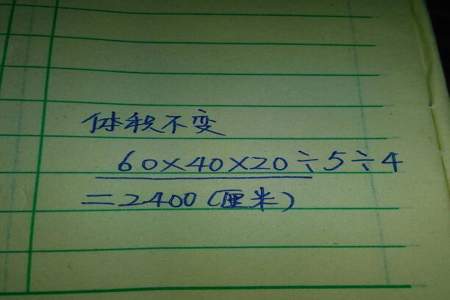 体积不变
60×40×20÷5÷4
=2400(厘米)